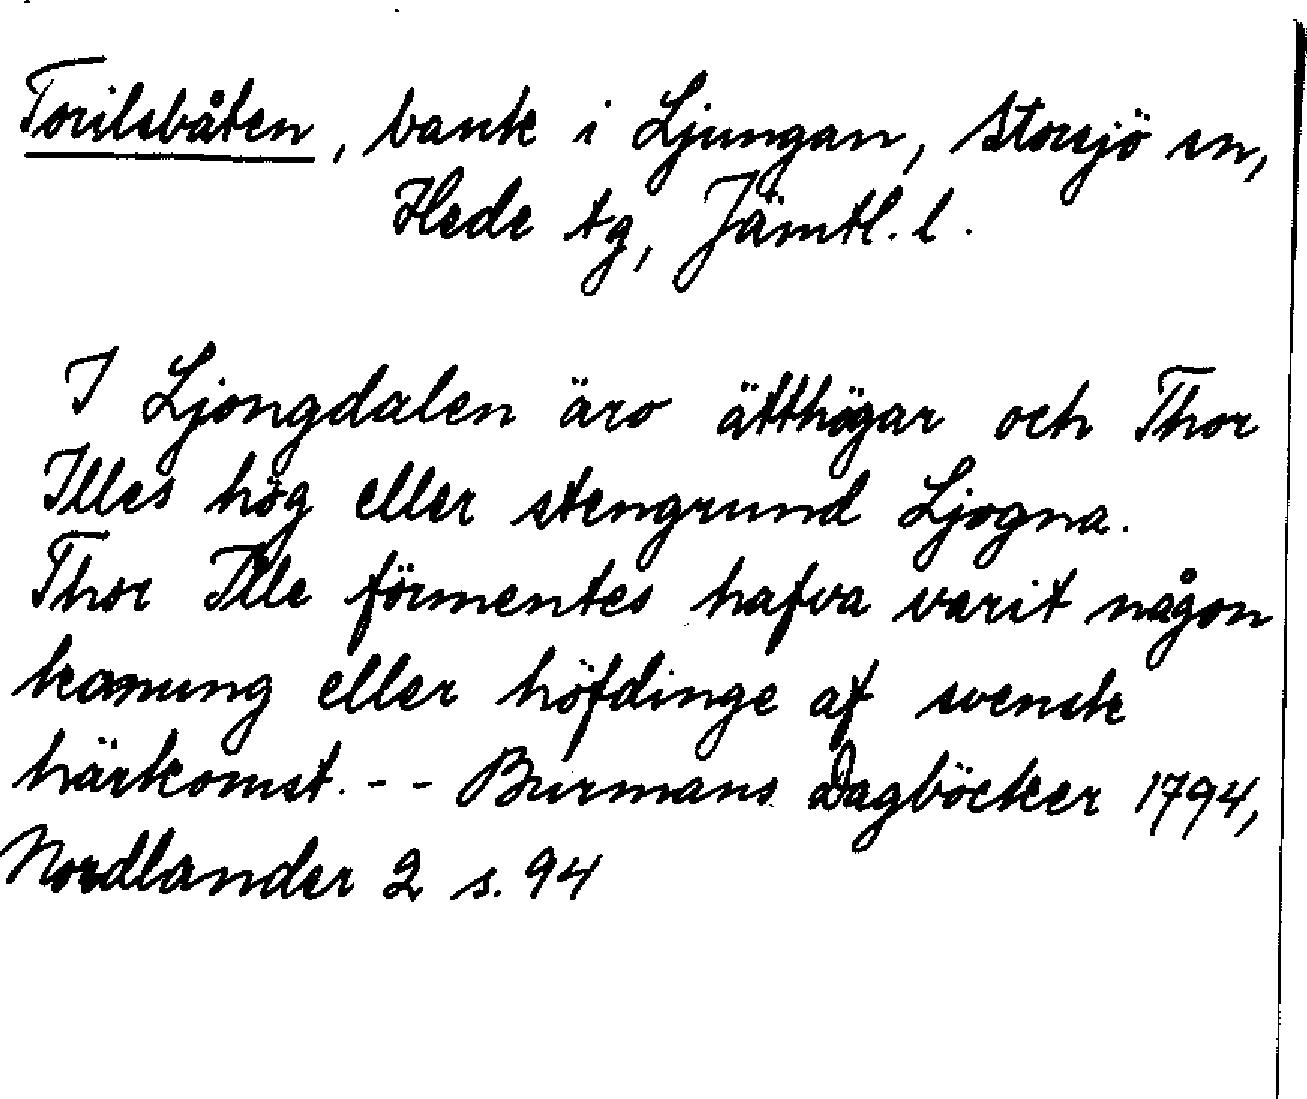 Torilsbåten, bank i Ljungan, Storsjö sn,
Hede tg, Jämtl. l.
I Ljongdalen äro ätthögar och Thor
Illes hög eller stengrund Ljogna.
Thor Ille förmentes hafva varit någon
konung eller höfdinge af svensk
härkomst. - - Burmans Dagböcker 1794,
Nordlander 2 s. 94